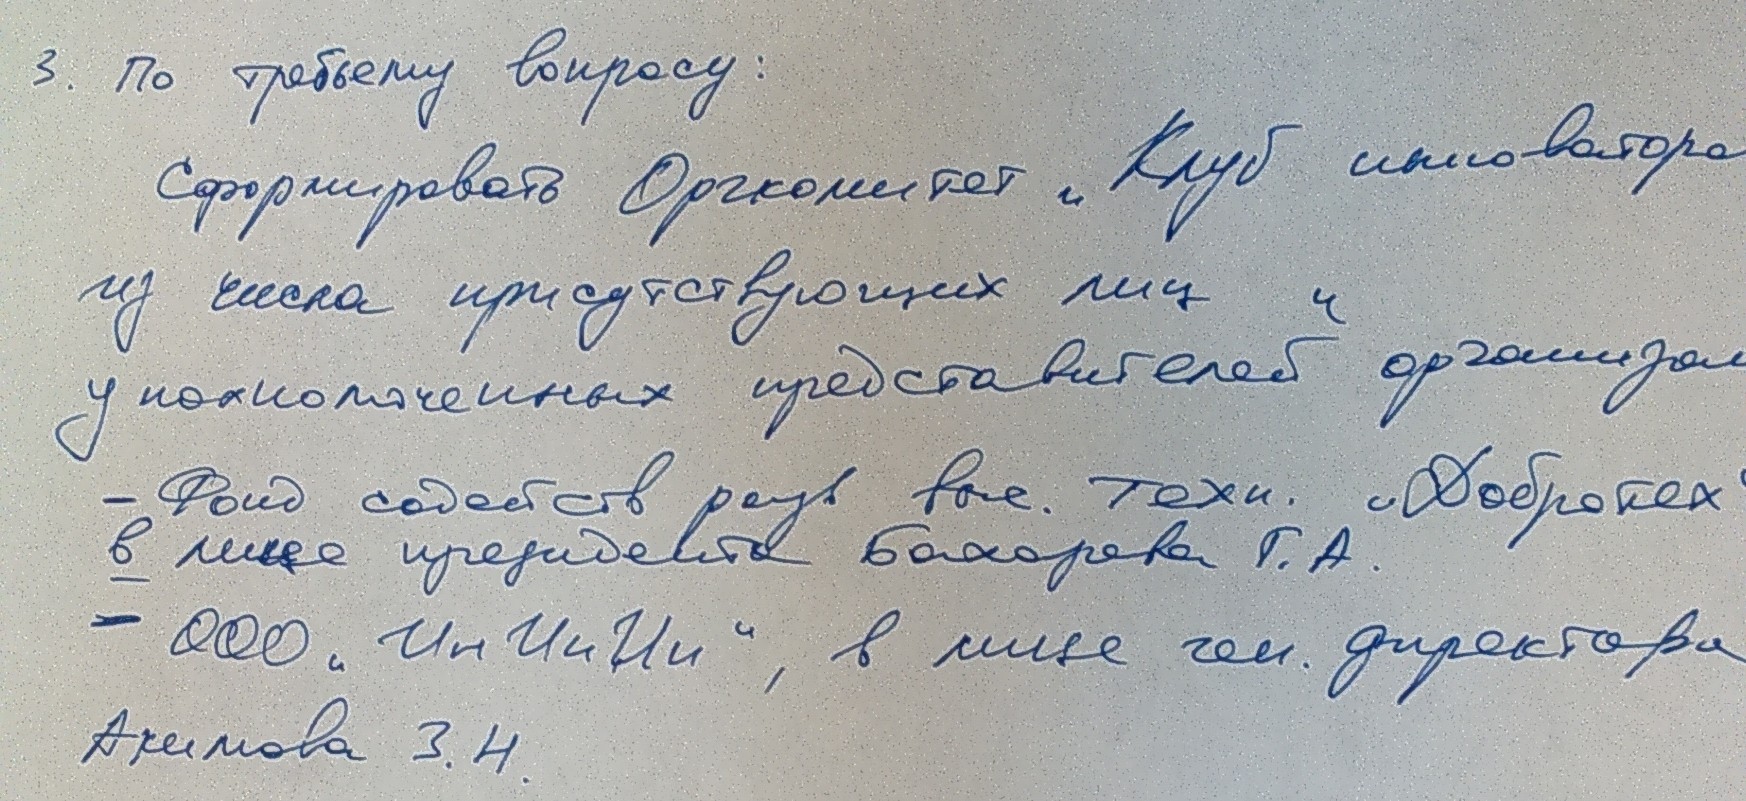 3. По третьему вопросу:
Сформировать Оргкомитет „Клуб инноватора
из числа присутствующих лиц и
уполномоченных представителей организац
- Фонд содейств разв выс. техн. „Добротех“
в лице президента Базарова Г.А.
- ООО „ИнИциИ“, в лице ген. директора
Акимова З.Н.